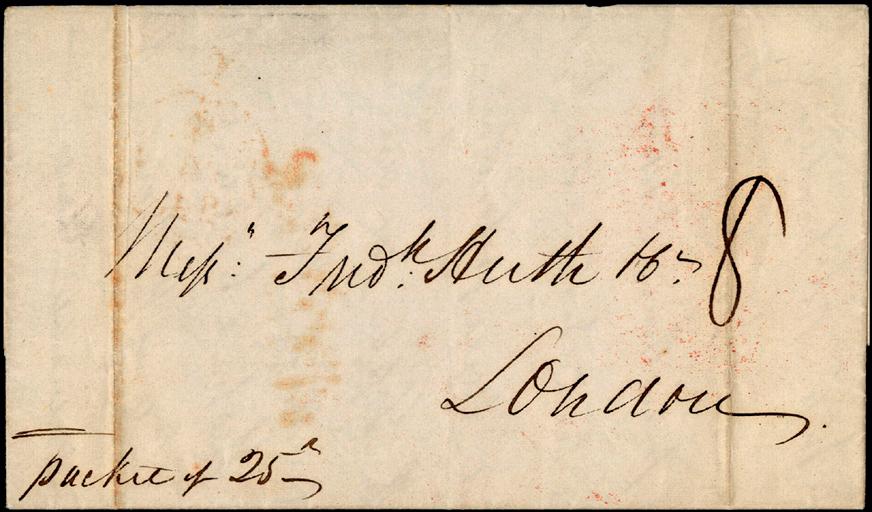 Messrs. Fredk. Huth & Co. 8
London
packet of 25